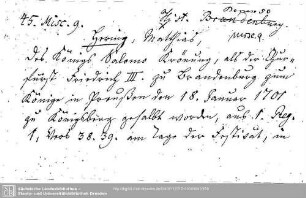 45. Misc. 9.
Hist. Brandenburg.
misc. 9
Hering, Matthias,
des Königs Salomo Krönung, als der Chur-
fürst Friedrich III. zu Brandenburg zum
Könige in Preußen den 18. Januar 1701
zu Königsberg gesalbt worden, aus 1. Reg.
1, Vers 38. 39. am Tage der Festivität, in
Sächsische Landesbibliothek -
Staats- und Universitätsbibliothek Dresden